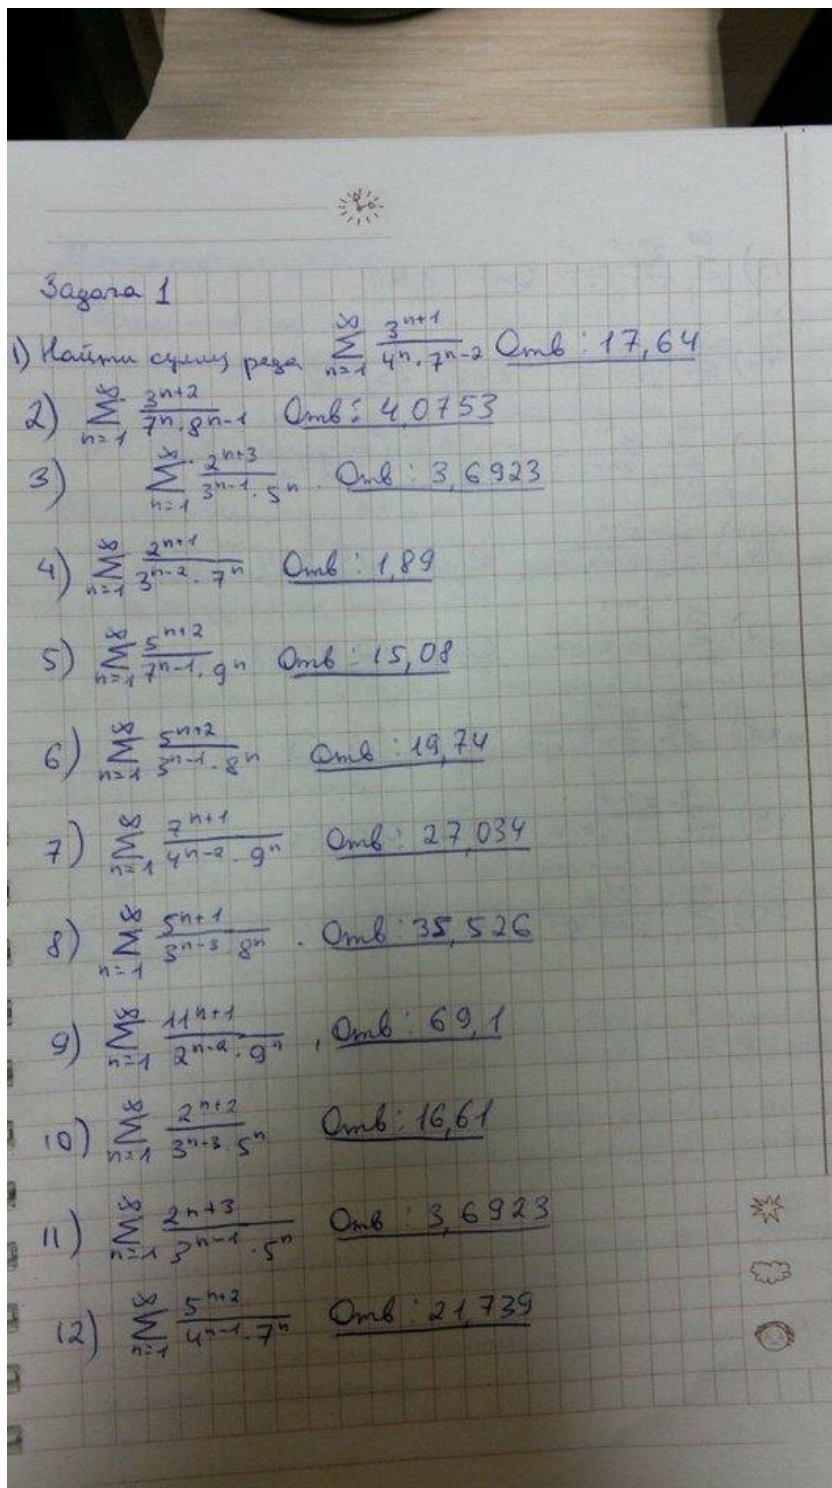 Задача 1
1) Найти сумму ряда \sum_{n=1}^{\infty} \frac{3^{n+1}}{4^n \cdot 7^{n-2}} Отв : 17,64
2) \sum_{n=1}^{\infty} \frac{3^{n+2}}{7^n \cdot 8^{n-1}} Отв : 4,0753
3) \sum_{n=1}^{\infty} \frac{2^{n+3}}{3^{n-1} \cdot 5^n} . Отв : 3,6923
4) \sum_{n=1}^{\infty} \frac{2^{n+1}}{3^{n-2} \cdot 7^n} Отв : 1,89
5) \sum_{n=1}^{\infty} \frac{5^{n+2}}{7^{n-1} \cdot 9^n} Отв : 15,08
6) \sum_{n=1}^{\infty} \frac{5^{n+2}}{3^{n-1} \cdot 8^n} Отв : 19,74
7) \sum_{n=1}^{\infty} \frac{7^{n+1}}{4^{n-2} \cdot 9^n} Отв : 27,034
8) \sum_{n=1}^{\infty} \frac{5^{n+1}}{3^{n-3} \cdot 8^n} . Отв : 35,526
9) \sum_{n=1}^{\infty} \frac{11^{n+1}}{2^{n-2} \cdot 9^n} , Отв : 69,1
10) \sum_{n=1}^{\infty} \frac{2^{n+2}}{3^{n-3} \cdot 5^n} Отв : 16,61
11) \sum_{n=1}^{\infty} \frac{2^{n+3}}{3^{n-1} \cdot 5^n} Отв : 3,6923
12) \sum_{n=1}^{\infty} \frac{5^{n+2}}{4^{n-1} \cdot 7^n} Отв : 21,739